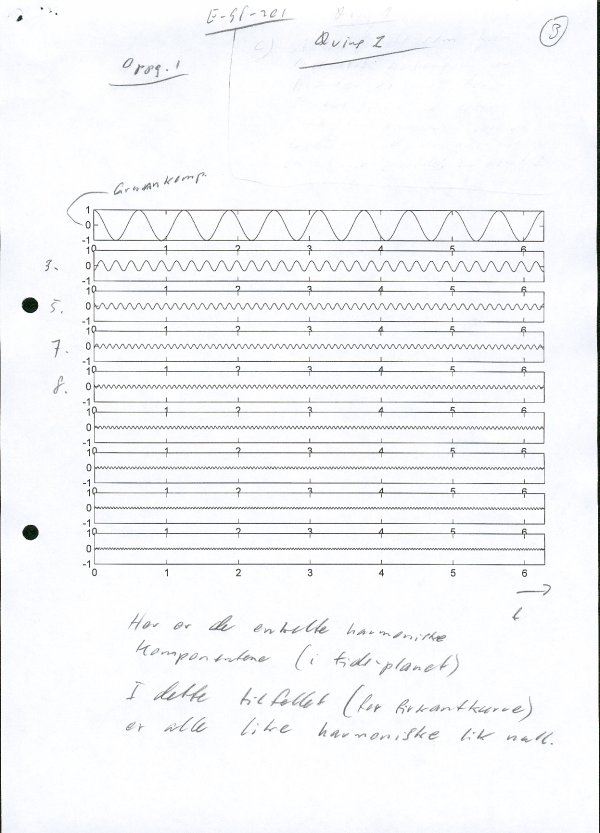 E-SF-201
Øving 2
3
Oppg. 1
Grunnkomp.
1
0
-1
0 1 2 3 4 5 6
3.
1
0
-1
0 1 2 3 4 5 6
5.
1
0
-1
0 1 2 3 4 5 6
7.
1
0
-1
0 1 2 3 4 5 6
8.
1
0
-1
0 1 2 3 4 5 6
1
0
-1
0 1 2 3 4 5 6
1
0
-1
0 1 2 3 4 5 6
1
0
-1
0 1 2 3 4 5 6
1
0
-1
0 1 2 3 4 5 6
t
Her er de enkelte harmoniske
komponentene (i tidsplanet)
I dette tilfellet (for firkantkurve)
er alle like harmoniske lik null.